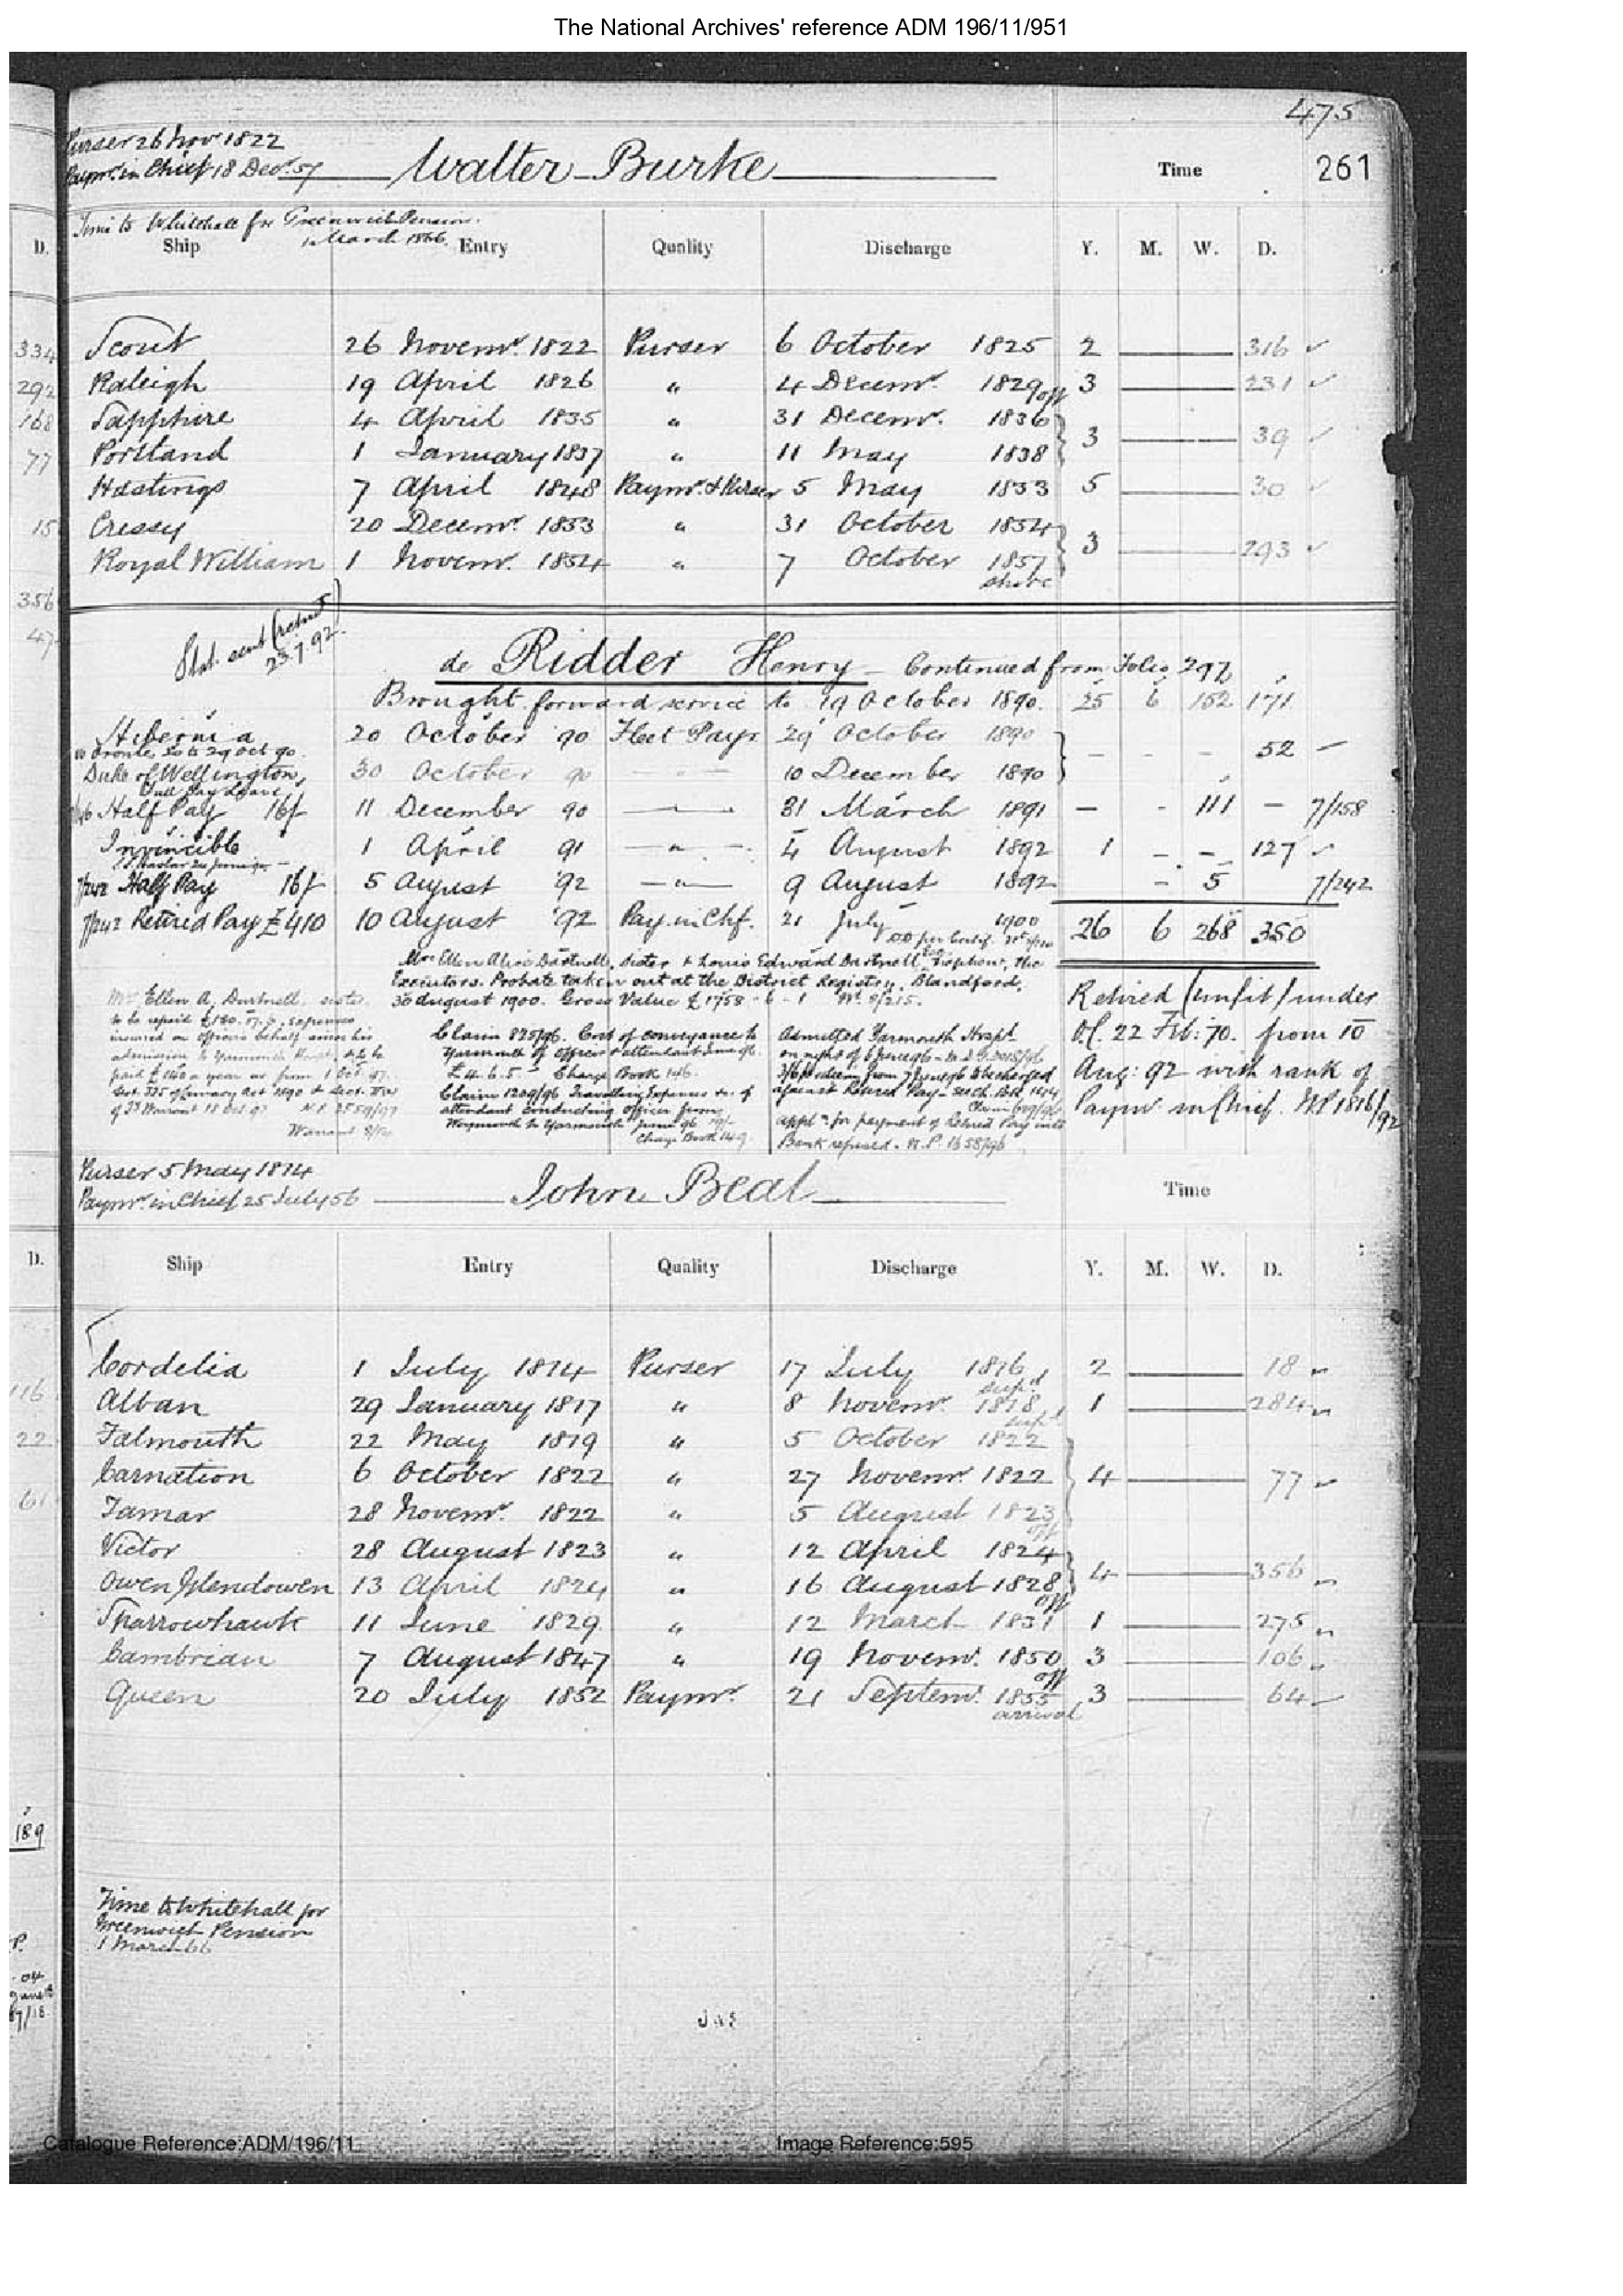 The National Archives' reference ADM 196/11/951
475
Purser 26 Novr 1822
Paymr. in Chief 18 Decr. 57 Walter Burke Time 261
Time to Whitehall for Greenwich Pension.
1 March 1866.
D. Ship Entry Quality Discharge Y. M. W. D.
334 Scout 26 Novemr. 1822 Purser 6 October 1825 2 316
292 Raleigh 19 April 1826 " 4 Decemr. 1829 off 3 231
168 Sapphire 4 April 1835 " 31 Decemr. 1836
3 39
77 Portland 1 January 1837 " 11 May 1838
Hastings 7 April 1848 Paymr. & Purser 5 May 1853 5 30
15 Cressy 20 Decemr. 1853 " 31 October 1854
3 293
Royal William 1 Novemr. 1854 " 7 October 1857
356
47
Stat. sent
23.7.92.
de Ridder Henry Continued from Folio 297
Brought forward service to 19 October 1890. 25 6 152 171
Hibernia 20 October 90 Fleet Payr 29 October 1890
to 29 Oct 90
52
Duke of Wellington, 30 October 90 " 10 December 1890
Full Pay Leave
Half Pay 16/ 11 December 90 " 31 March 1891 - - 111 - 7/158
Invincible 1 April 91 " 4 August 1892 1 - - 127
7/242 Half Pay 16/ 5 August 92 " 9 August 1892 - 5 7/242
7/242 Retired Pay £410 10 August 92 Pay. in Chf. 21 July 1900 26 6 268 350
Mrs Ellen Alice Dartnell, Sister & Louis Edward Dartnell, Nephew, the
Executors. Probate taken out at the District Registry, Blandford,
30 August 1900. Gross Value £1758-6-1
Retired (unfit) under
O.C. 22 Feb: 70. from 10
Aug: 92 with rank of
Paymr. in Chief. NP 1816/92
Mrs Ellen A. Dartnell, sister
to be repaid expenses
incurred on officers behalf since his
admission to Yarmouth
Claim 825/96. Cost of conveyance to
Yarmouth of officer & attendant June 96.
£4.6.5 Charge Book 146.
Claim 1209/96 Travelling Expenses &c. of
attendant conducting officer from
Weymouth to Yarmouth June 96
Charge Book 149.
Admitted Yarmouth Hospl.
on night of 6 June 96
against Retired Pay
for payment of Retired Pay into
Bank refused. N.P. 1658/96
Purser 5 May 1814
Paymr. in Chief 25 July 56 John Beal Time
D. Ship Entry Quality Discharge Y. M. W. D.
Cordelia 1 July 1814 Purser 17 July 1816 2 18
116 Alban 29 January 1817 " 8 Novemr. 1818 1 284
22 Falmouth 22 May 1819 " 5 October 1822
Carnation 6 October 1822 " 27 Novemr. 1822 4 77
61 Tamar 28 Novemr. 1822 " 5 August 1823
off
Victor 28 August 1823 " 12 April 1824
4 356
Owen Glendower 13 April 1824 " 16 August 1828
off
Sparrowhawk 11 June 1829 " 12 March 1831 1 275
Cambrian 7 August 1847 " 19 Novemr. 1850 3 106
off
Queen 20 July 1852 Paymr. 21 Septemr. 1855 3 64
arrival
189
Time to Whitehall for
Greenwich Pension
1 March 66
Catalogue Reference:ADM/196/11 Image Reference:595